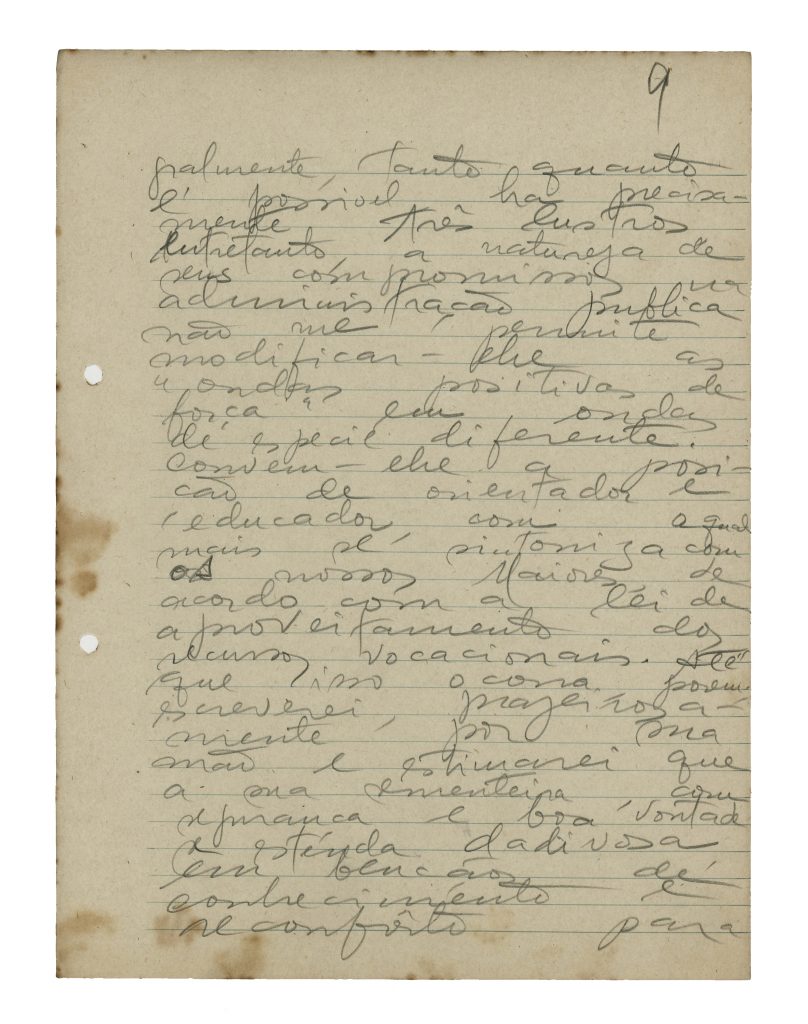 9
gralmente, tanto quanto
é possivel ha precisa-
mente três lustros
Entretanto, a natureza de
seus compromissos na
administração publica
não me permite
modificar-lhe as
"ondas positivas de
força" em ondas
de espécie diferente.
Convém-lhe a posi-
ção de orientador e
educador, com a qual
mais se sintoniza com
os nossos Maiores, de
acordo com a lei de
aproveitamento dos
recursos vocacionais. Até
que isso ocorra, porem,
escreverei, prazeirosa-
mente por sua
mão e estimarei que
a sua sementeira com
segurança e boa vontade
se estenda dadivosa
em bençãos de
conhecimento e
reconfôrto para